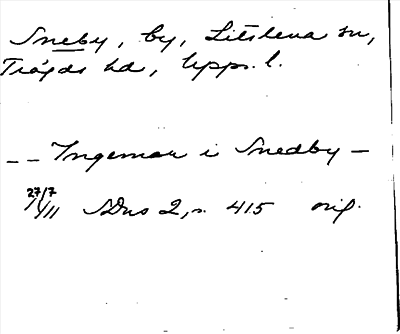 Sneby, by, Litslena sn,
Trögds hd, Upps. l.
-- Ingemar i Snedby -
27/7 1411 SDns 2, s. 415 orig.